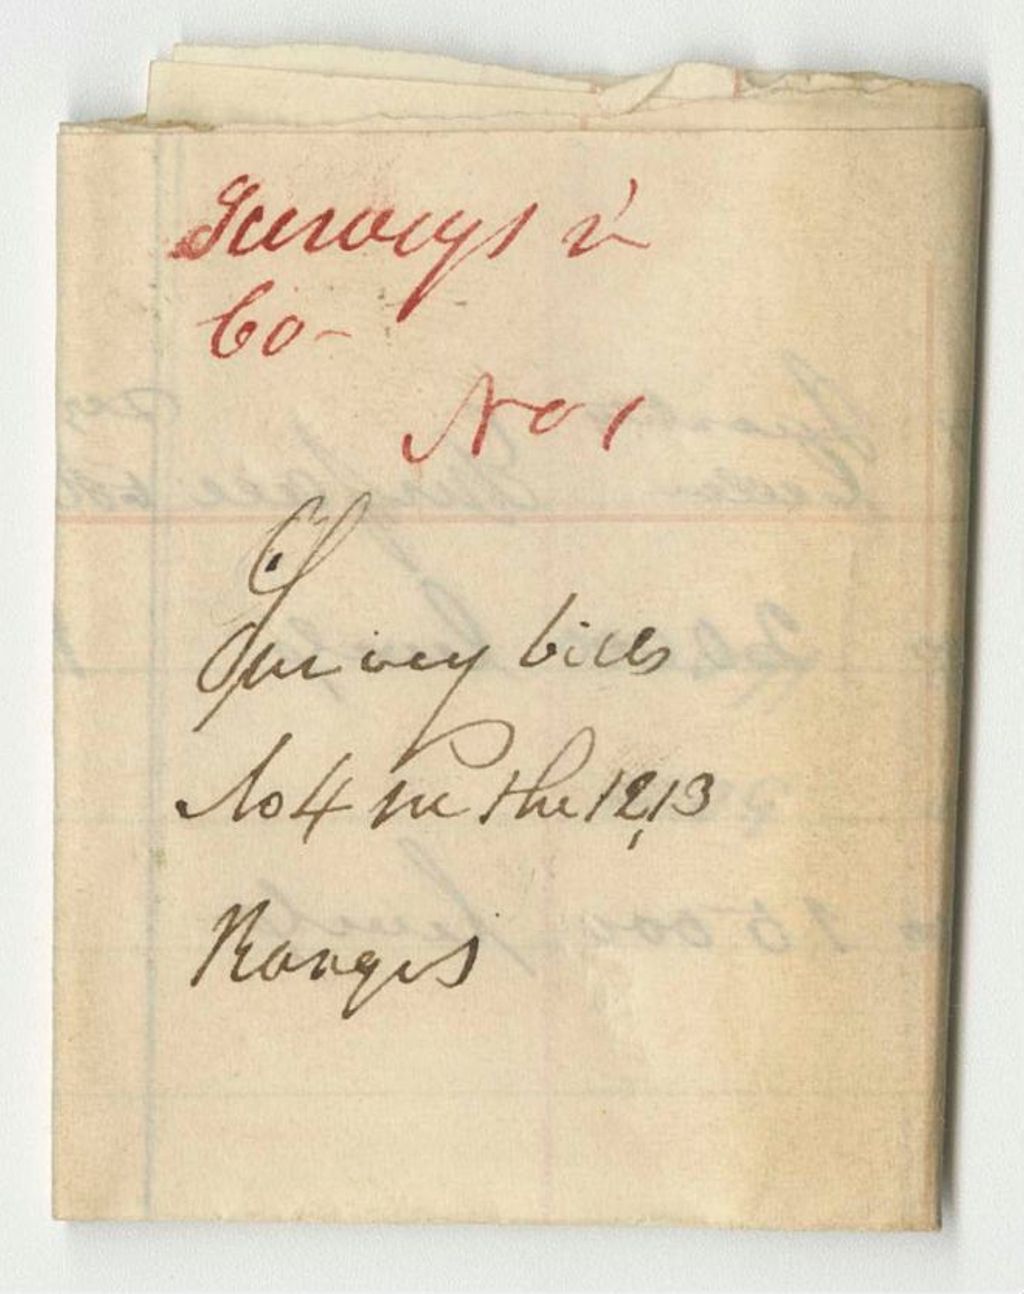 Surveys in
Co-
No 1
Survey bills
No 4 in the 12,13
Ranges